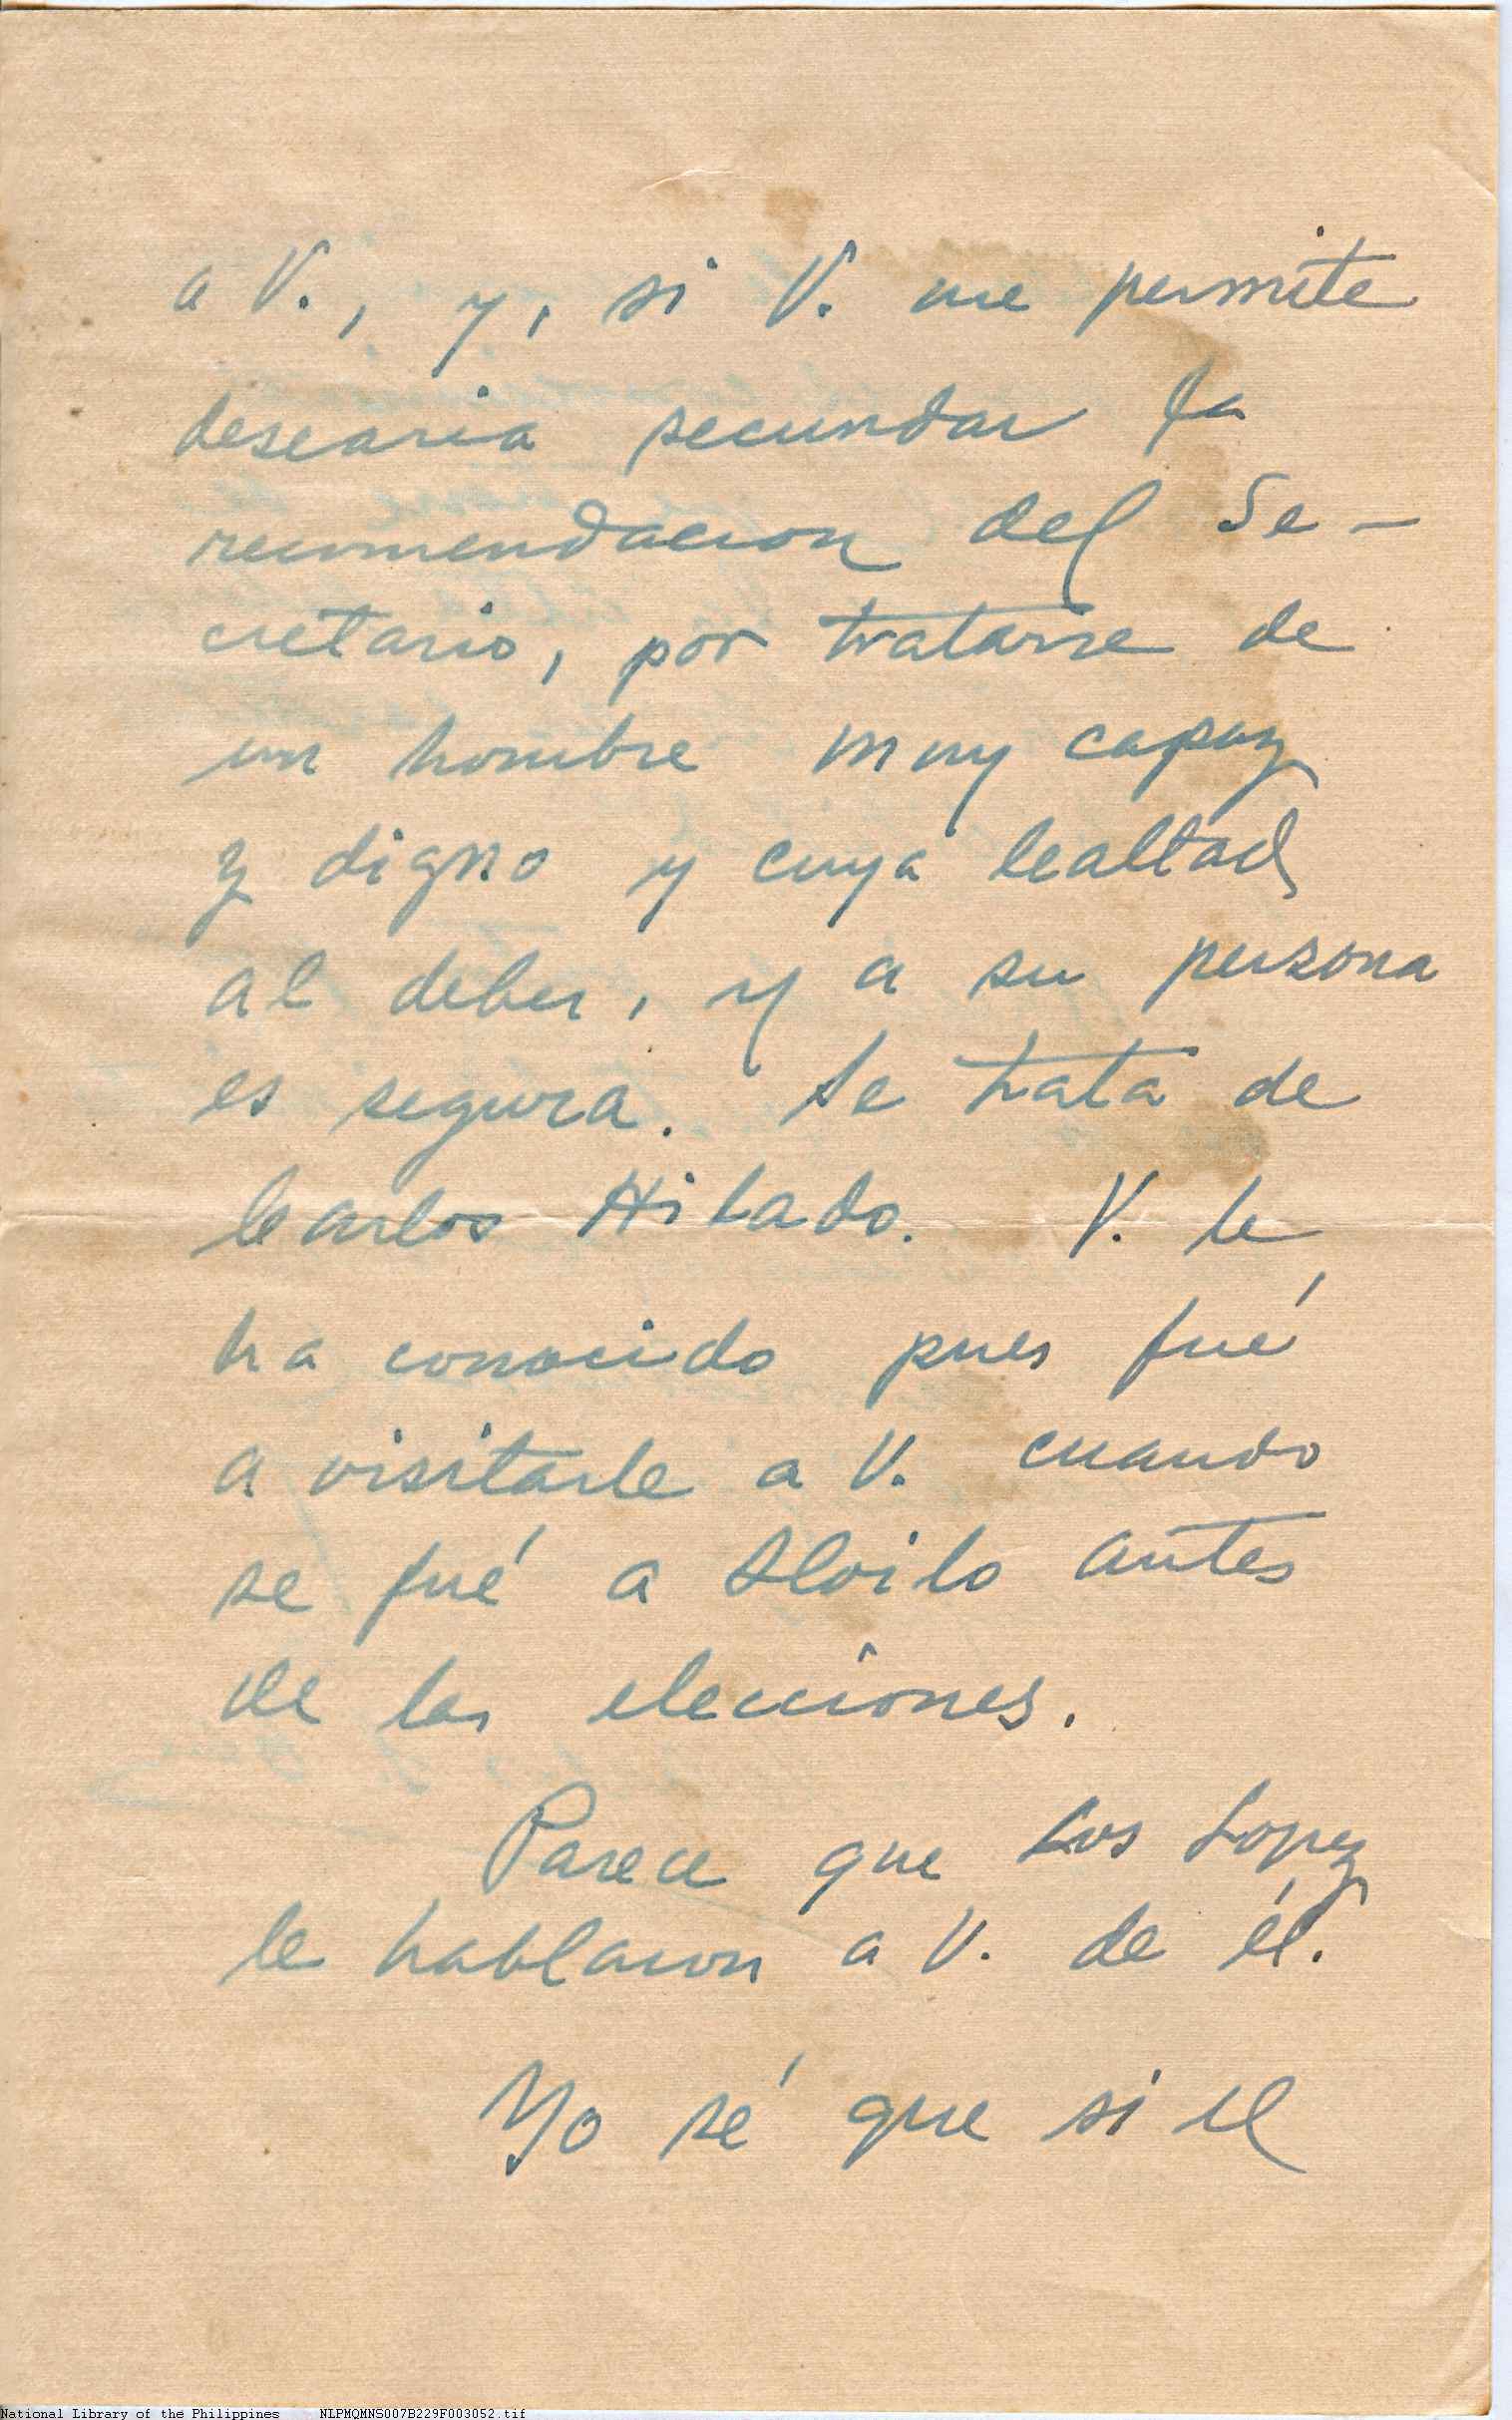 a V., y, si V. me permite
desearia secundar la
recomendacion del Se-
cretario, por tratarse de
un hombre muy capaz
y digno y cuya lealtad
al deber, y a su persona
es segura. Se trata de
Carlos Hilado. V. le
ha conocido pues fué
a visitarle a V. cuando
se fué a Iloilo antes
de las elecciones.
Parece que los Lopez
le hablaron a V. de él.
Yo sé que si el
National Library of the Philippines NLPMQMNS007B229F003052.tif